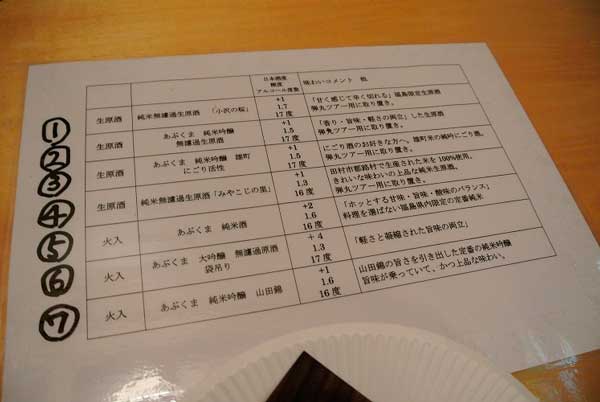 日本酒度
酸度
アルコール度数
味わいコメント 他
① 生原酒 純米無濾過生原酒 「小沢の桜」 +1 1.7 17度 「甘く感じて辛く切れる」福島限定生原酒
弾丸ツアー用に取り置き。
② 生原酒 あぶくま 純米吟醸
無濾過生原酒 +1 1.5 17度 「香り・旨味・軽さの両立」した生原酒
弾丸ツアー用に取り置き。
③ 生原酒 あぶくま 純米吟醸 雄町
にごり活性 +1 1.5 17度 にごり酒のお好きな方へ。雄町米の純吟にごり酒。
弾丸ツアー用に取り置き。
④ 生原酒 純米無濾過生原酒「みやこじの里」 +1 1.3 16度 田村市都路村で生産された米を100%使用。
きれいな味わいの上品な純米生原酒。
弾丸ツアー用に取り置き。
⑤ 火入 あぶくま 純米酒 +2 1.6 16度 「ホッとする甘味・旨味・酸味のバランス」
料理を選ばない福島県内限定の定番純米
⑥ 火入 あぶくま 大吟醸 無濾過原酒
袋吊り +4 1.3 17度 「軽さと凝縮された旨味の両立」
⑦ 火入 あぶくま 純米吟醸 山田錦 +1 1.6 16度 山田錦の旨さを引き出した定番の純米吟醸
旨味が乗っていて、かつ上品な味わい。